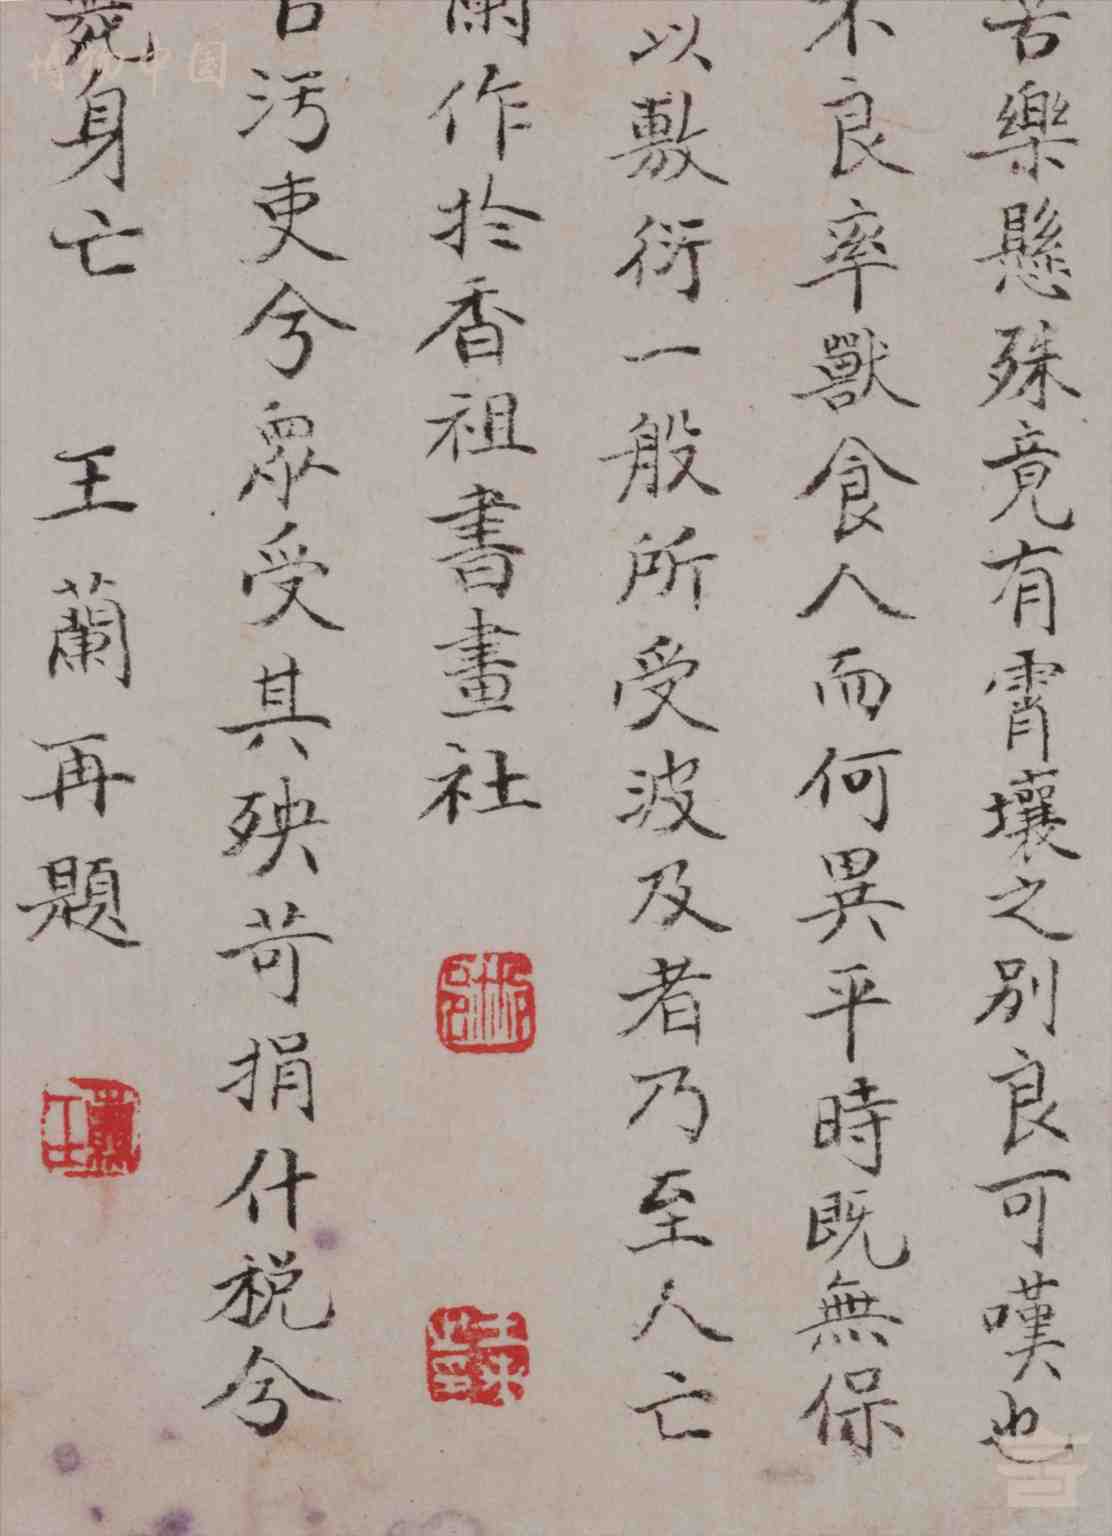 苦樂懸殊竟有霄壤之別良可嘆也
不良率獸食人而何異平時既無保
以敷衍一般所受波及者乃至人亡
蘭作於香祖書畫社
污吏兮眾受其殃苛捐什稅兮
身亡 王蘭再題
王蘭
博物中国